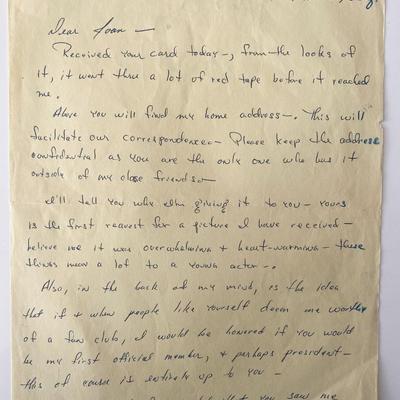 Dear Joan —
Received your card today —, from the looks of
it, it went thru a lot of red tape before it reached
me.
Above you will find my home address —. This will
facilitate our correspondence — Please keep the address
confidential as you are the only one who has it
outside of my close friends —
I'll tell you why I'm giving it to you — yours
is the first request for a picture I have received —
believe me it was overwhelming & heart-warming — these
things mean a lot to a young actor —.
Also, in the back of my mind, is the idea
that if & when people like yourself deem me worthy
of a fan club, I would be honored if you would
be my first official member, & perhaps president —
this of course is entirely up to you —
you saw me